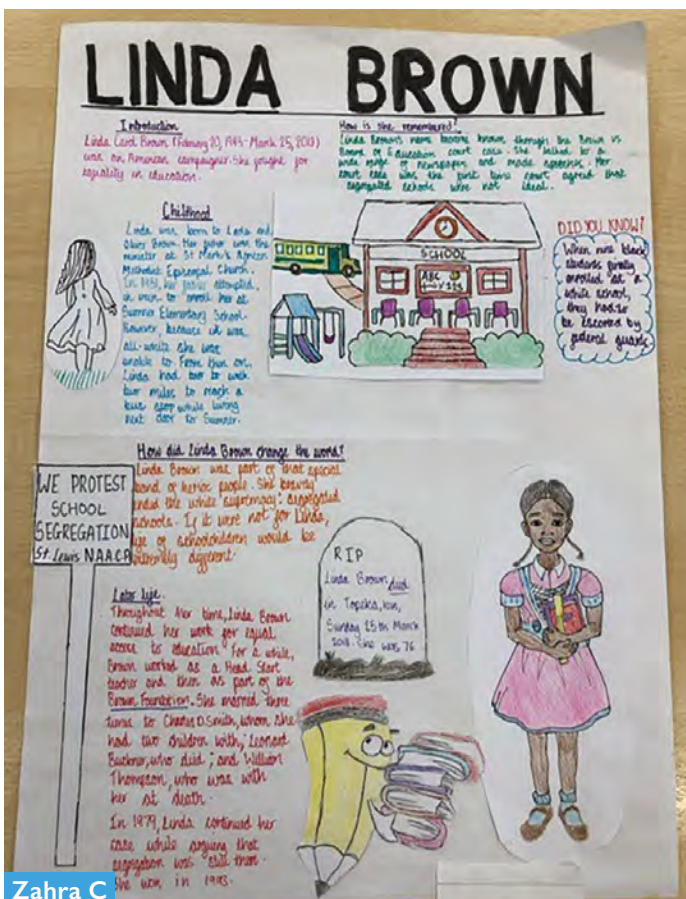 LINDA BROWN
Introduction
Linda Carol Brown (February 20, 1943-March 25, 2018)
was an American campaigner. She fought for
equality in education.
How is she remembered?
Linda Brown's name became known through the Brown vs
Board of Education court case. She talked to a
wide range of newspaper and made speeches. Her
court case was the first time court agreed that
segregated schools were not ideal.
Childhood
Linda was born to Leola and
Oliver Brown. Her father was the
minister at St Mark's African
Methodist Episcopal Church.
In 1951, her father attempted,
in vain to enroll her at
Sumner Elementary School.
However, because it was
all-white she was
unable to. From then on,
Linda had to walk
two miles to reach a
bus stop while living
next door to Sumner.
SCHOOL
ABC
123
DID YOU KNOW?
When nine black
students finally
enrolled at a
white school,
they had to
be escorted by
federal guards
How did Linda Brown change the world?
Linda Brown was part of that special
band of heroic people. She bravely
ended the white supremacy: segregated
schools. If it were not for Linda,
life of schoolchildren would be
extremely different.
WE PROTEST
SCHOOL
SEGREGATION
St. Lewis N.A.A.C.P
RIP
Linda Brown died
in Topeka,
Sunday 25th March
2018. She was 76
Later life.
Throughout her time, Linda Brown
continued her work for equal
access to education. For a while,
Brown worked as a Head Start
teacher and then as part of the
Brown Foundation. She married three
times to Charles D. Smith, whom she
had two children with; Leonard
Buckner, who died; and William
Thompson, who was with
her at death.
In 1979, Linda continued her
case while arguing that
segregation was still there.
She won in 1993.
Zahra C